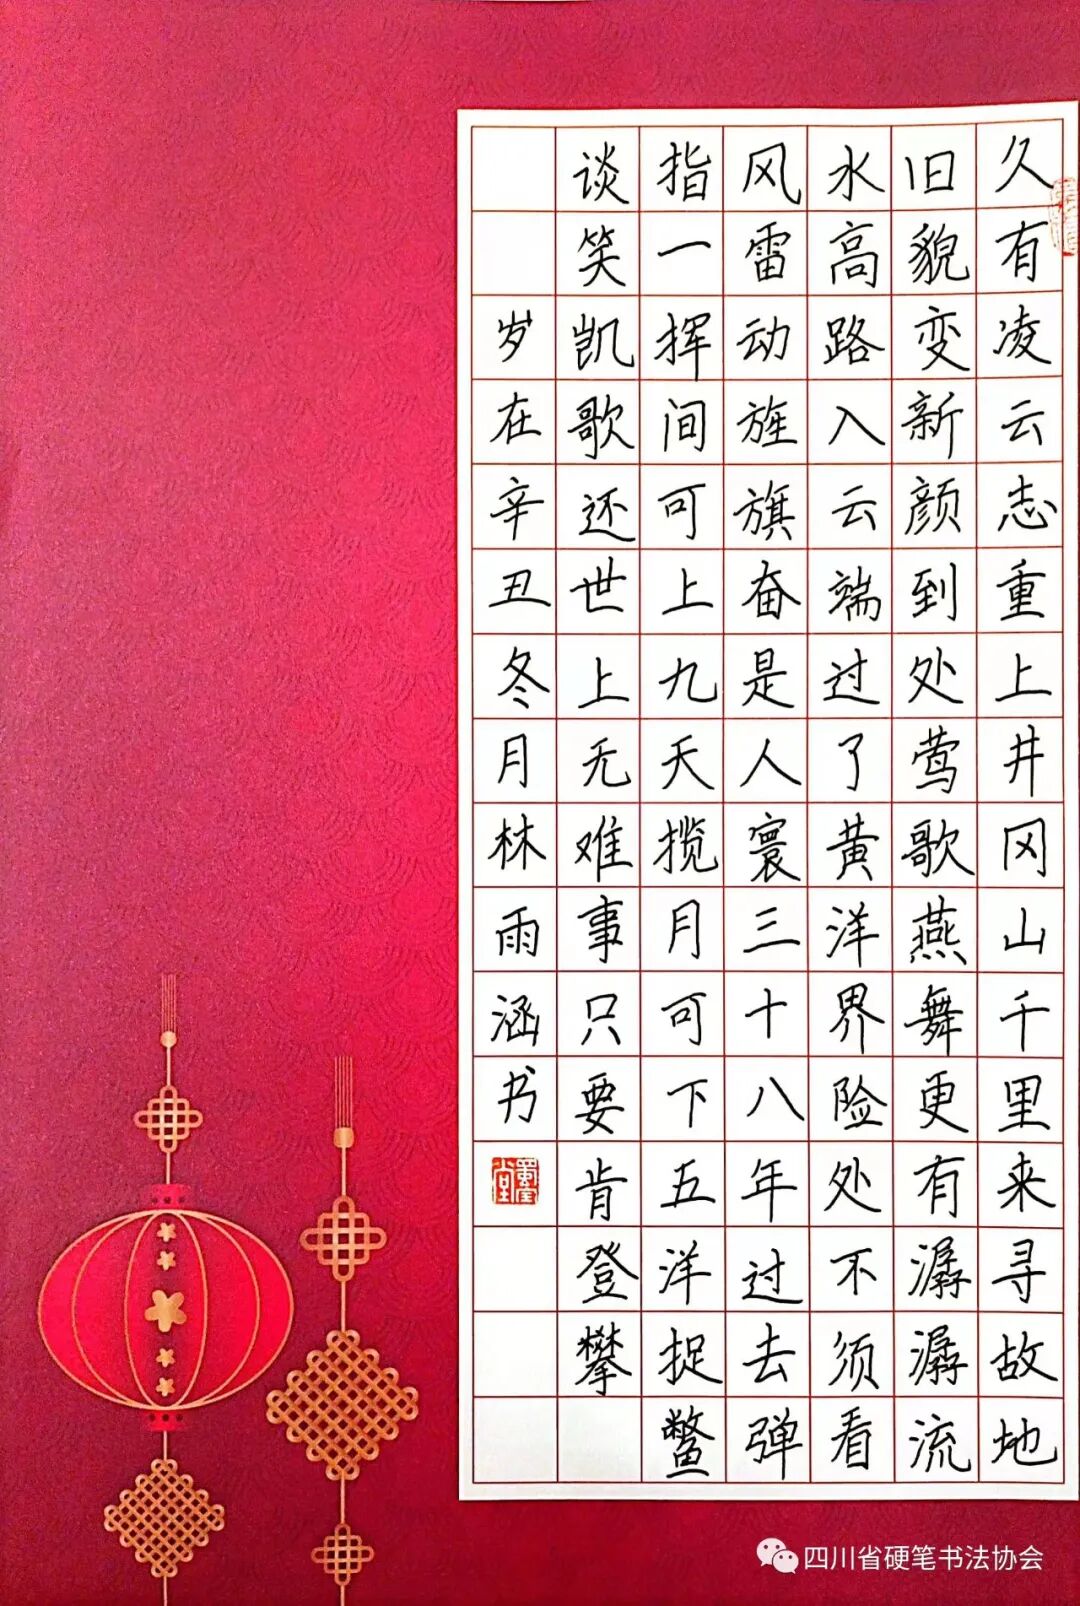 久有凌云志重上井冈山千里来寻故地
旧貌变新颜到处莺歌燕舞更有潺潺流
水高路入云端过了黄洋界险处不须看
风雷动旌旗奋是人寰三十八年过去弹
指一挥间可上九天揽月可下五洋捉鳖
谈笑凯歌还世上无难事只要肯登攀
岁在辛丑冬月林雨涵书
四川省硬笔书法协会